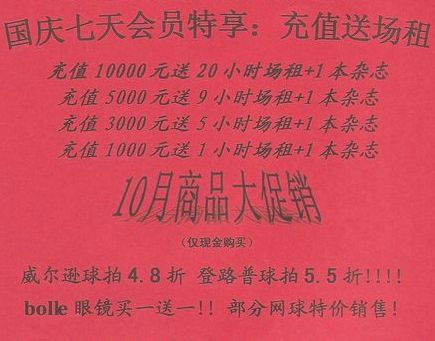 国庆七天会员特享：充值送场租
充值 10000 元送 20 小时场租+1 本杂志
充值 5000 元送 9 小时场租+1 本杂志
充值 3000 元送 5 小时场租+1 本杂志
充值 1000 元送 1 小时场租+1 本杂志
10月商品大促销
（仅现金购买）
威尔逊球拍 4.8 折 登路普球拍 5.5 折!!!!
bolle 眼镜买一送一!! 部分网球特价销售!